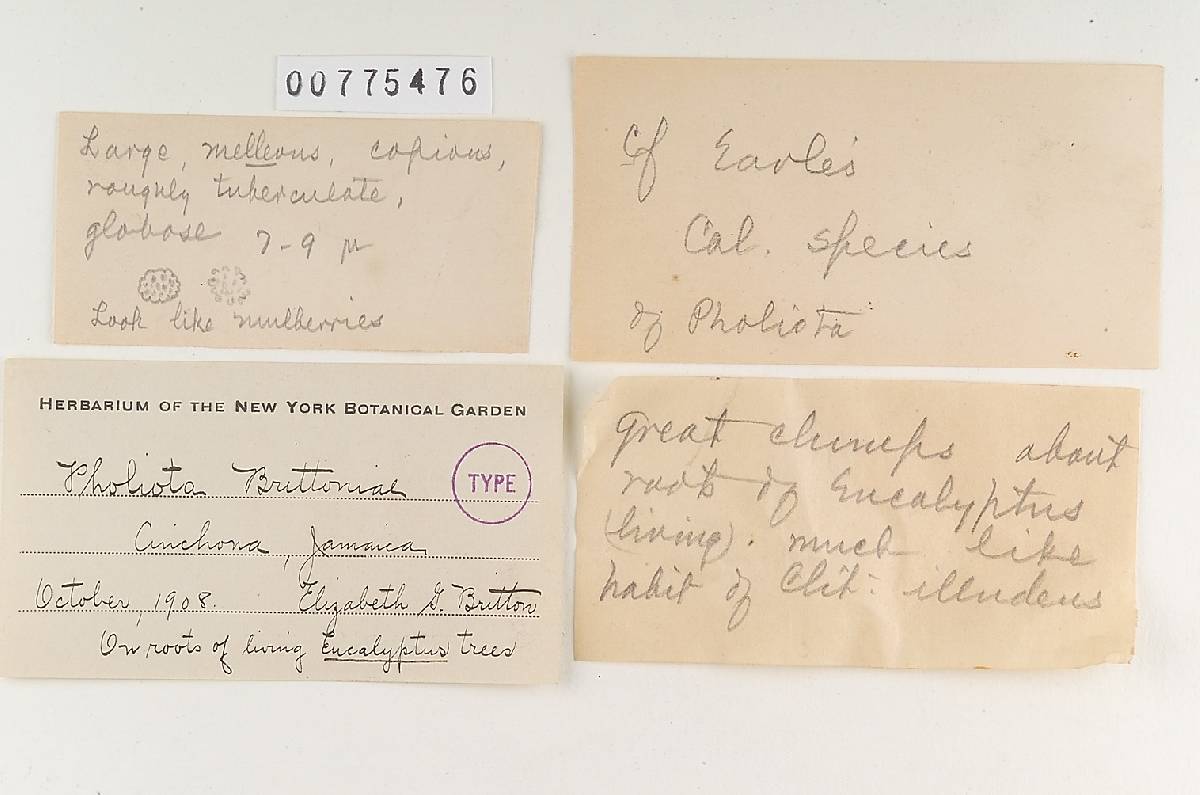 00775476
Large, melleous, copious,
roughly tuberculate,
globose 7-9 µ
Look like mulberries
Cf Earle's
Cal. species
of Pholiota
HERBARIUM OF THE NEW YORK BOTANICAL GARDEN
Pholiota Brittoniae
TYPE
Cinchona, Jamaica
October, 1908. Elizabeth G. Britton
On roots of living Eucalyptus trees
Great clumps about
roots of Eucalyptus
(living). much like
habit of Clit: illudens